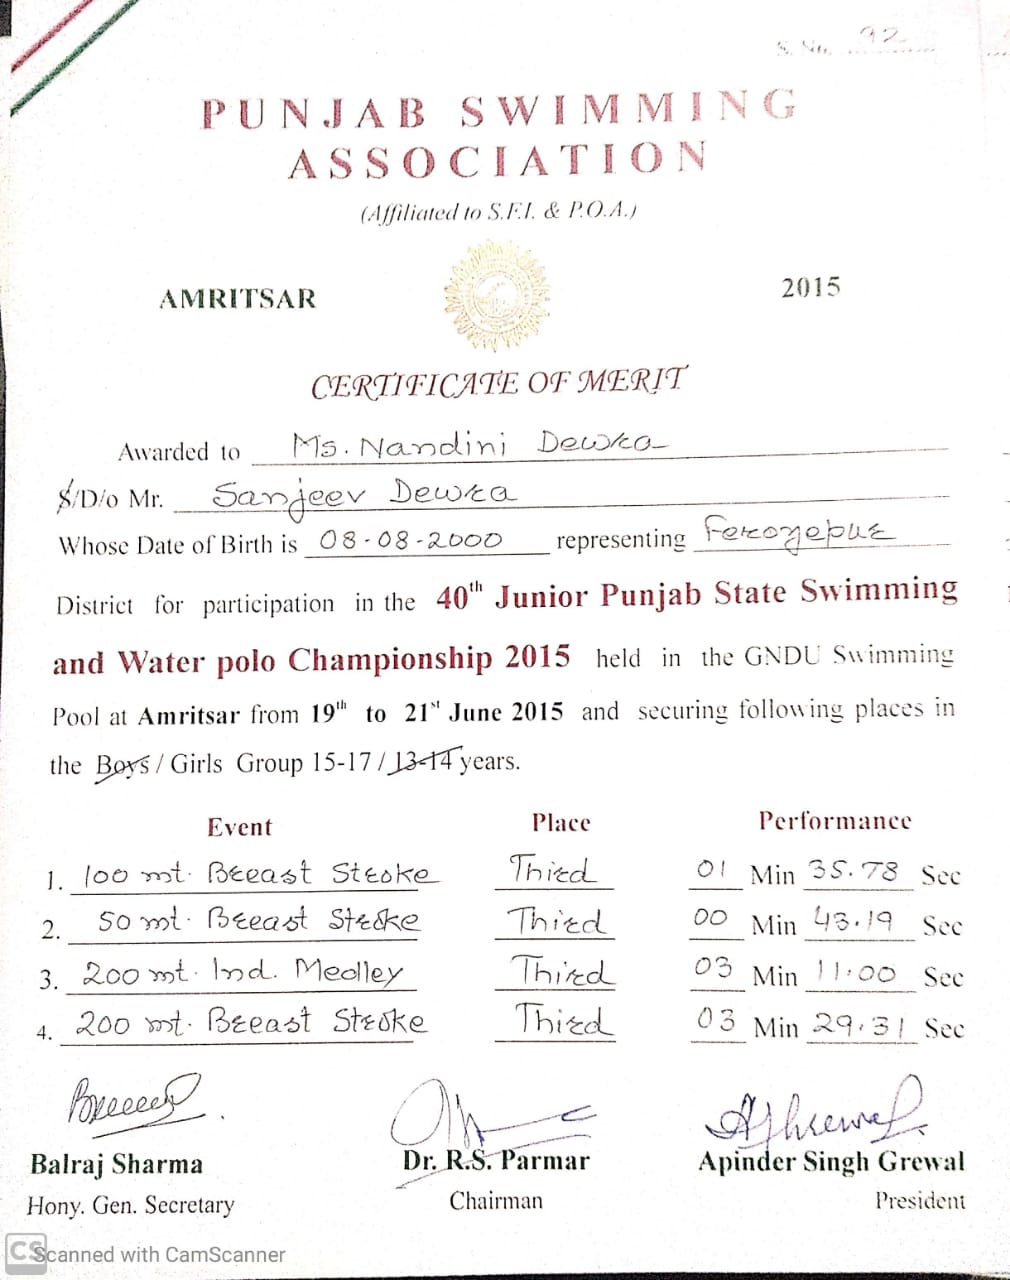 S. No. 92
PUNJAB SWIMMING
ASSOCIATION
(Affiliated to S.F.I. & P.O.A.)
AMRITSAR 2015
CERTIFICATE OF MERIT
Awarded to Ms. Nandini Dewra
S/D/o Mr. Sanjeev Dewra
Whose Date of Birth is 08-08-2000 representing Ferozepur
District for participation in the 40th Junior Punjab State Swimming
and Water polo Championship 2015 held in the GNDU Swimming
Pool at Amritsar from 19th to 21st June 2015 and securing following places in
the Boys / Girls Group 15-17 / 13-14 years.
Event Place Performance
1. 100 mt. Breast Stroke Third 01 Min 35.78 Sec
2. 50 mt. Breast Stroke Third 00 Min 43.19 Sec
3. 200 mt. Ind. Medley Third 03 Min 11.00 Sec
4. 200 mt. Breast Stroke Third 03 Min 29.31 Sec
Balraj Sharma Dr. R.S. Parmar Apinder Singh Grewal
Hony. Gen. Secretary Chairman President
CS Scanned with CamScanner